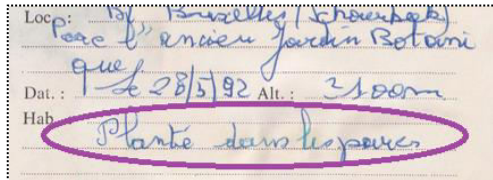 Loc.: Bl Bruxelles (Schaerbeek)
Parc l'ancien Jardin Botani
que. le 28/5/92 Alt.: ± 100m
Hab Planté dans les parcs